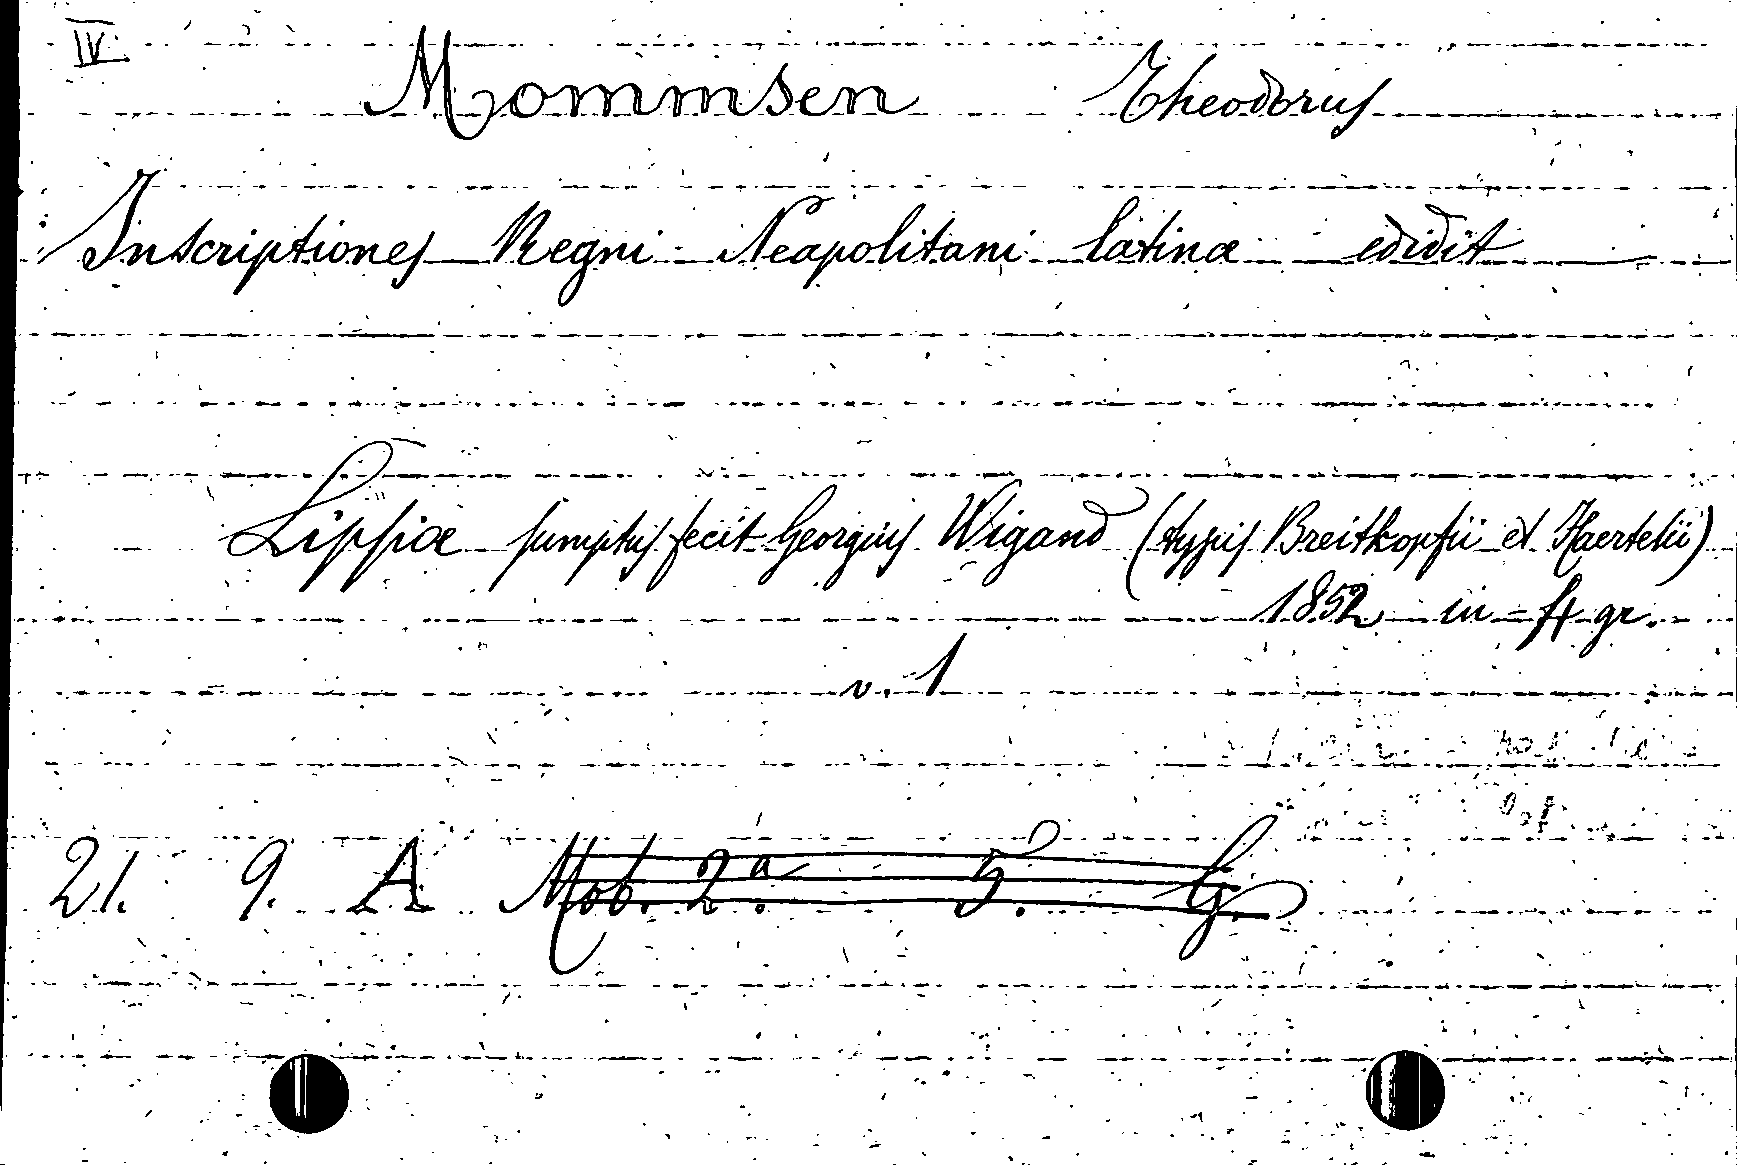 IV.
Mommsen Theodorus
Inscriptiones Regni Neapolitani latinæ edidit
Lipsiæ sumptus fecit Georgius Wigand (typis Breitkopfii et Haertelii)
1852 in-f4 gr.
v. 1
21. 9. A Mob. 2ª. 5. G.